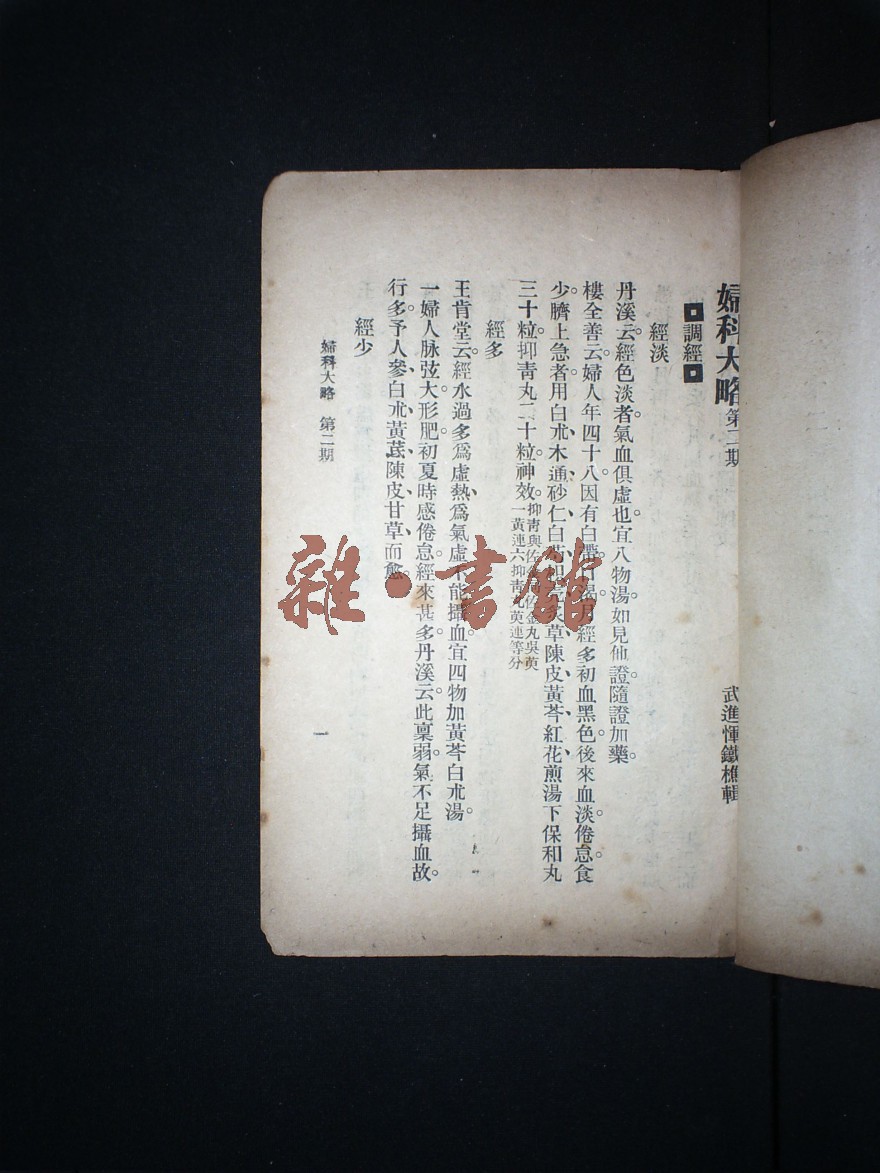 婦科大略第二期
武進惲鐵樵輯
調經
經淡
丹溪云經色淡者氣血俱虛也宜八物湯如見他證隨證加藥。
樓全善云婦人年四十八因有白帶口渴月經多初血黑色後來血淡倦怠食
少臍上急者用白朮、木通、砂仁、白 炙草、陳皮、黃芩、紅花煎湯下保和丸
三十粒抑青丸二十粒神效。抑青與佐金 佐金丸吳萸一黃連六抑青丸萸連等分
經多
王肯堂云經水過多爲虛熱爲氣虛不能攝血宜四物加黃芩白朮湯。
一婦人脉弦大形肥初夏時感倦怠經來甚多丹溪云此稟弱氣不足攝血故
行多予人參、白朮、黃茋、陳皮、甘草而愈
經少
婦科大略 第二期
一
雜·書館